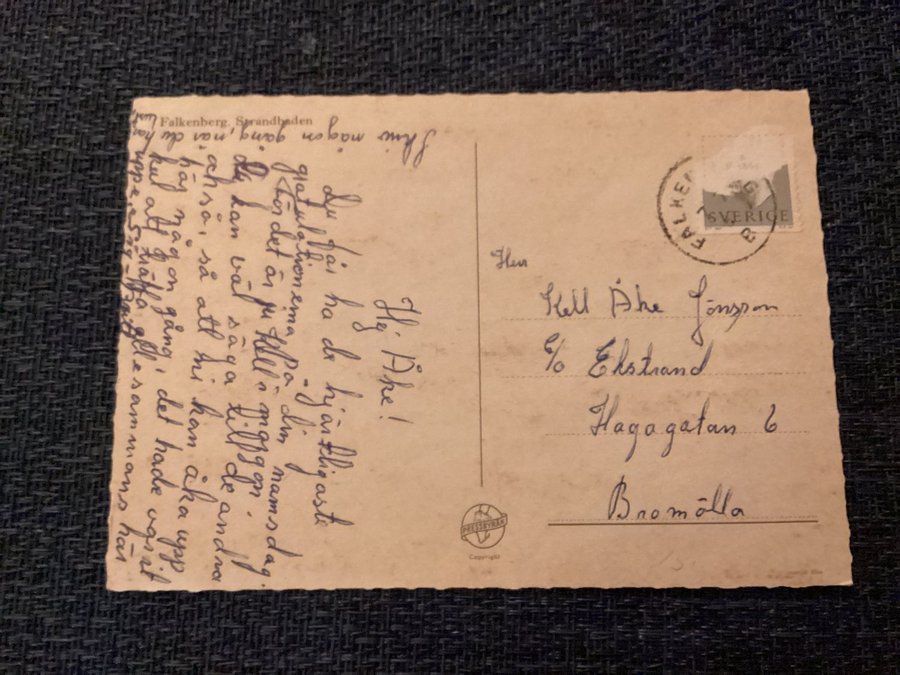 Falkenberg. Strandbaden
Hej Åke!
Du får ha de hjärtligaste
gratulationerna på din namnsdag.
för det är ju Kell i morgon.
Du kan väl säga till de andra
också, så att ni kan åka upp
hit någon gång, det hade varit
kul att träffa alle sammans här
uppe.
Skriv någon gång, när du
Herr
Kell Åke Jönsson
c/o Ekstrand
Hagagatan 6
Bromölla
SVERIGE
FALKENBERG
PRESSBYRÅN
Copyright